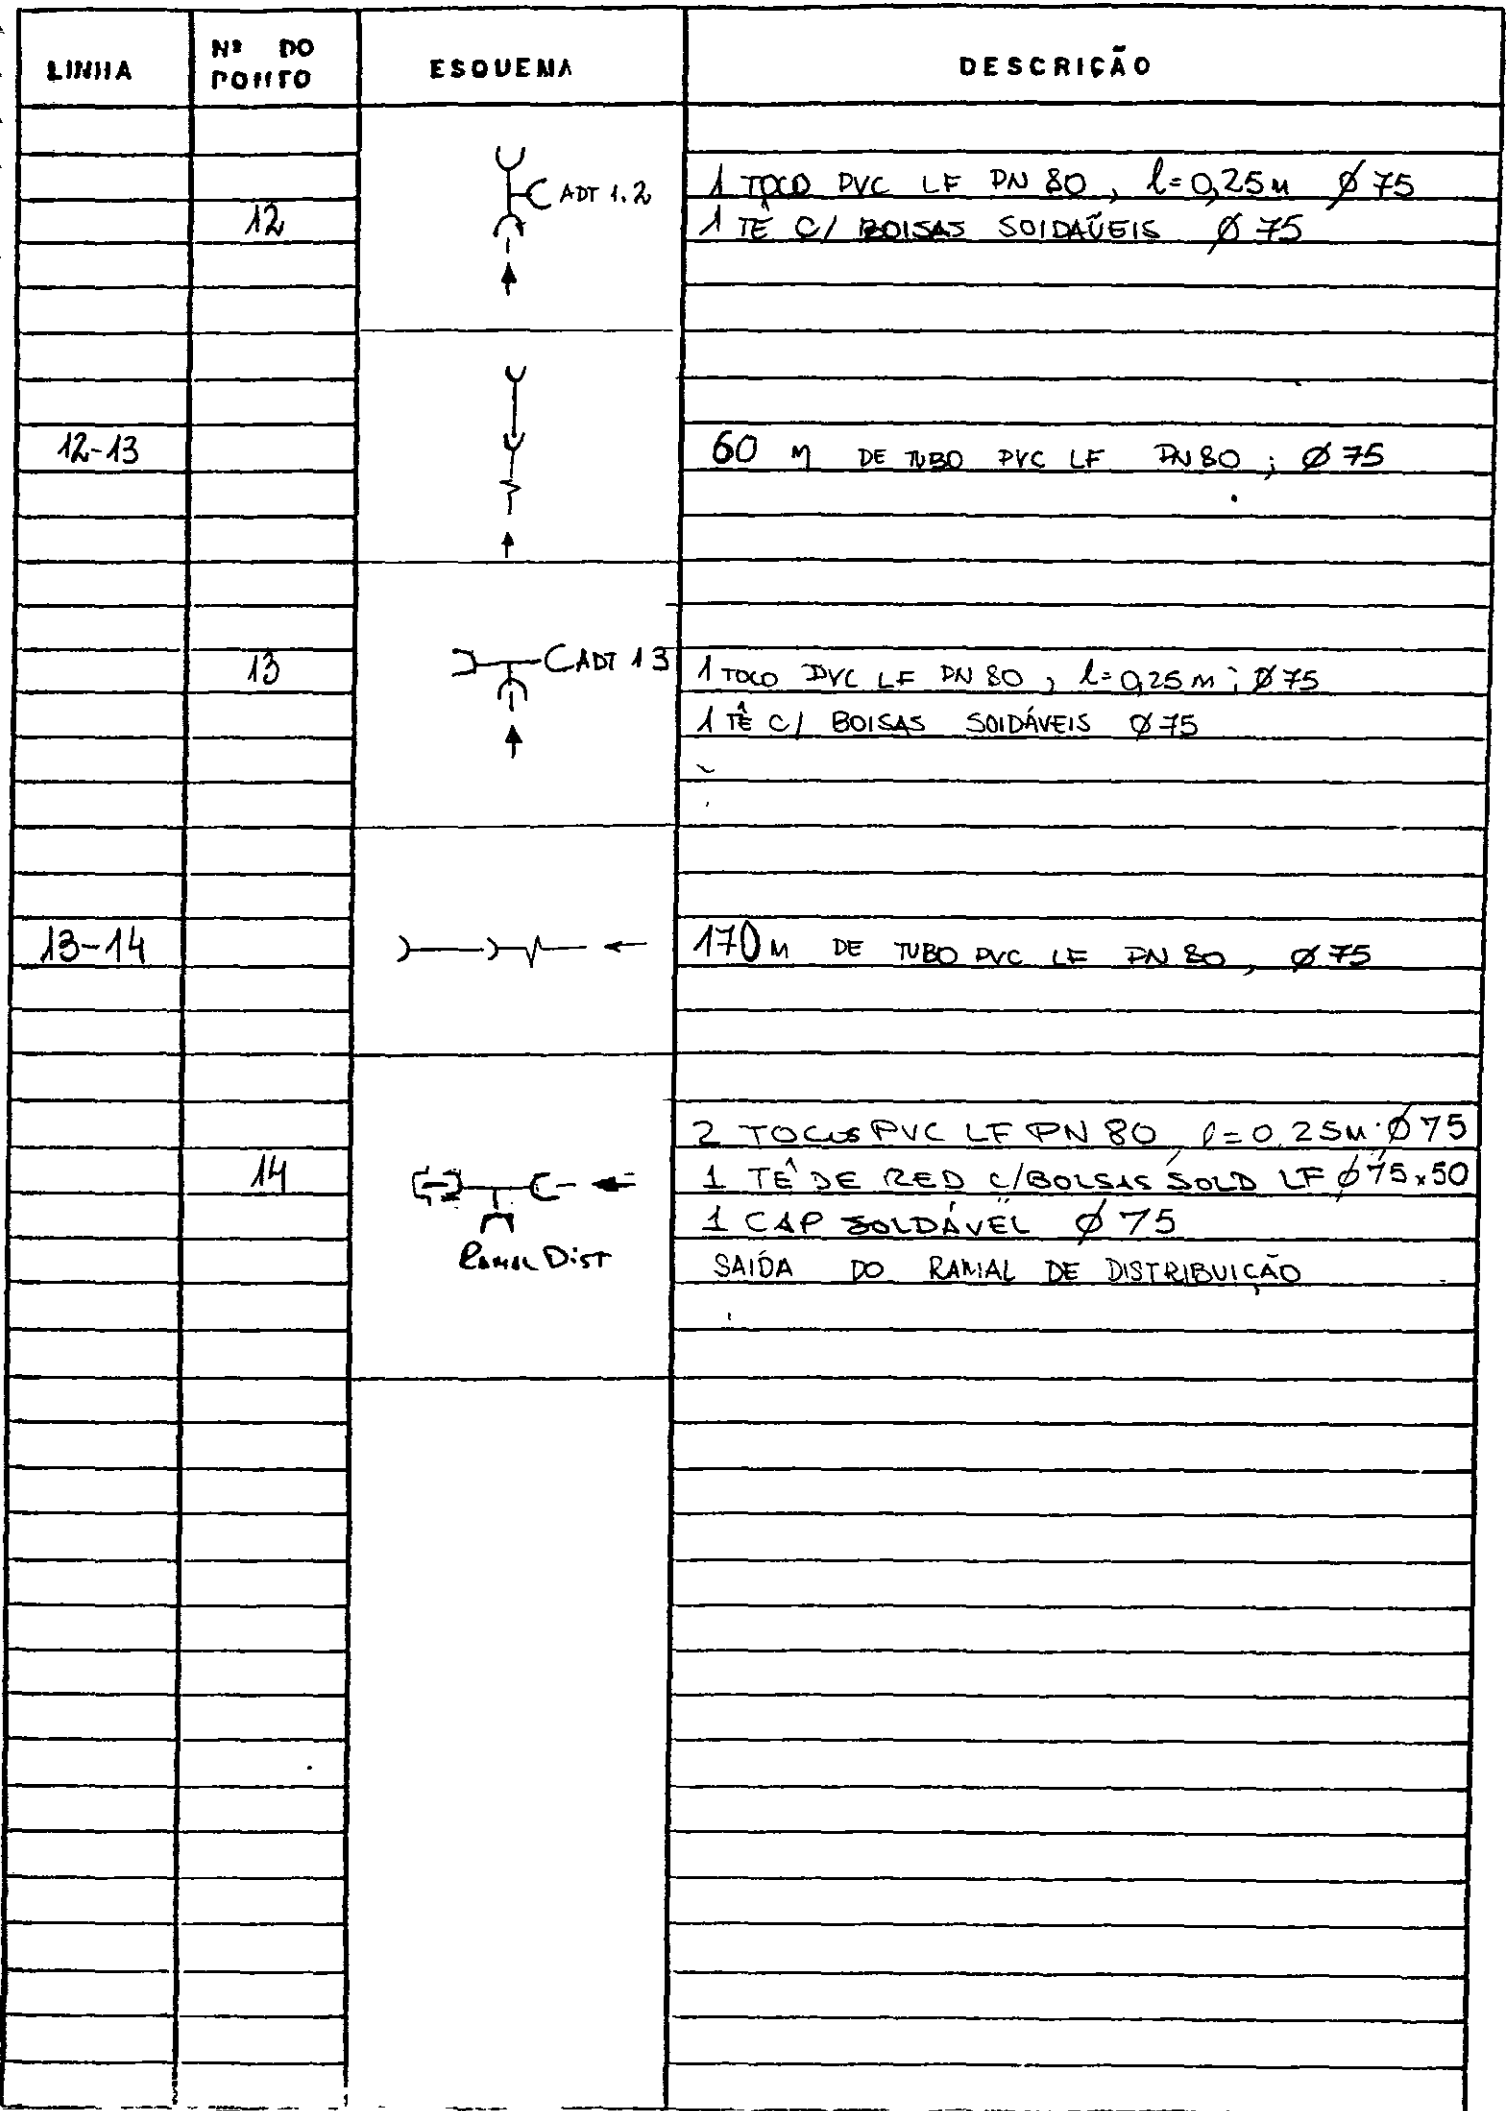 LINHA
Nº DO
PONTO
ESQUEMA
DESCRIÇÃO
12
ADT 1.2
1 TOCO PVC LF PN 80, l=0,25M Ø 75
1 TÊ C/ BOLSAS SOLDÁVEIS Ø 75
12-13
60 M DE TUBO PVC LF PN 80; Ø 75
13
ADT 13
1 TOCO PVC LF PN 80, l=0,25 M; Ø 75
1 TÊ C/ BOLSAS SOLDÁVEIS Ø 75
13-14
170 M DE TUBO PVC LF PN 80, Ø 75
14
RAMAL DIST
2 TOCOS PVC LF PN 80, l=0,25M; Ø 75
1 TÊ DE RED C/BOLSAS SOLD LF Ø 75x50
1 CAP SOLDÁVEL Ø 75
SAÍDA DO RAMAL DE DISTRIBUIÇÃO